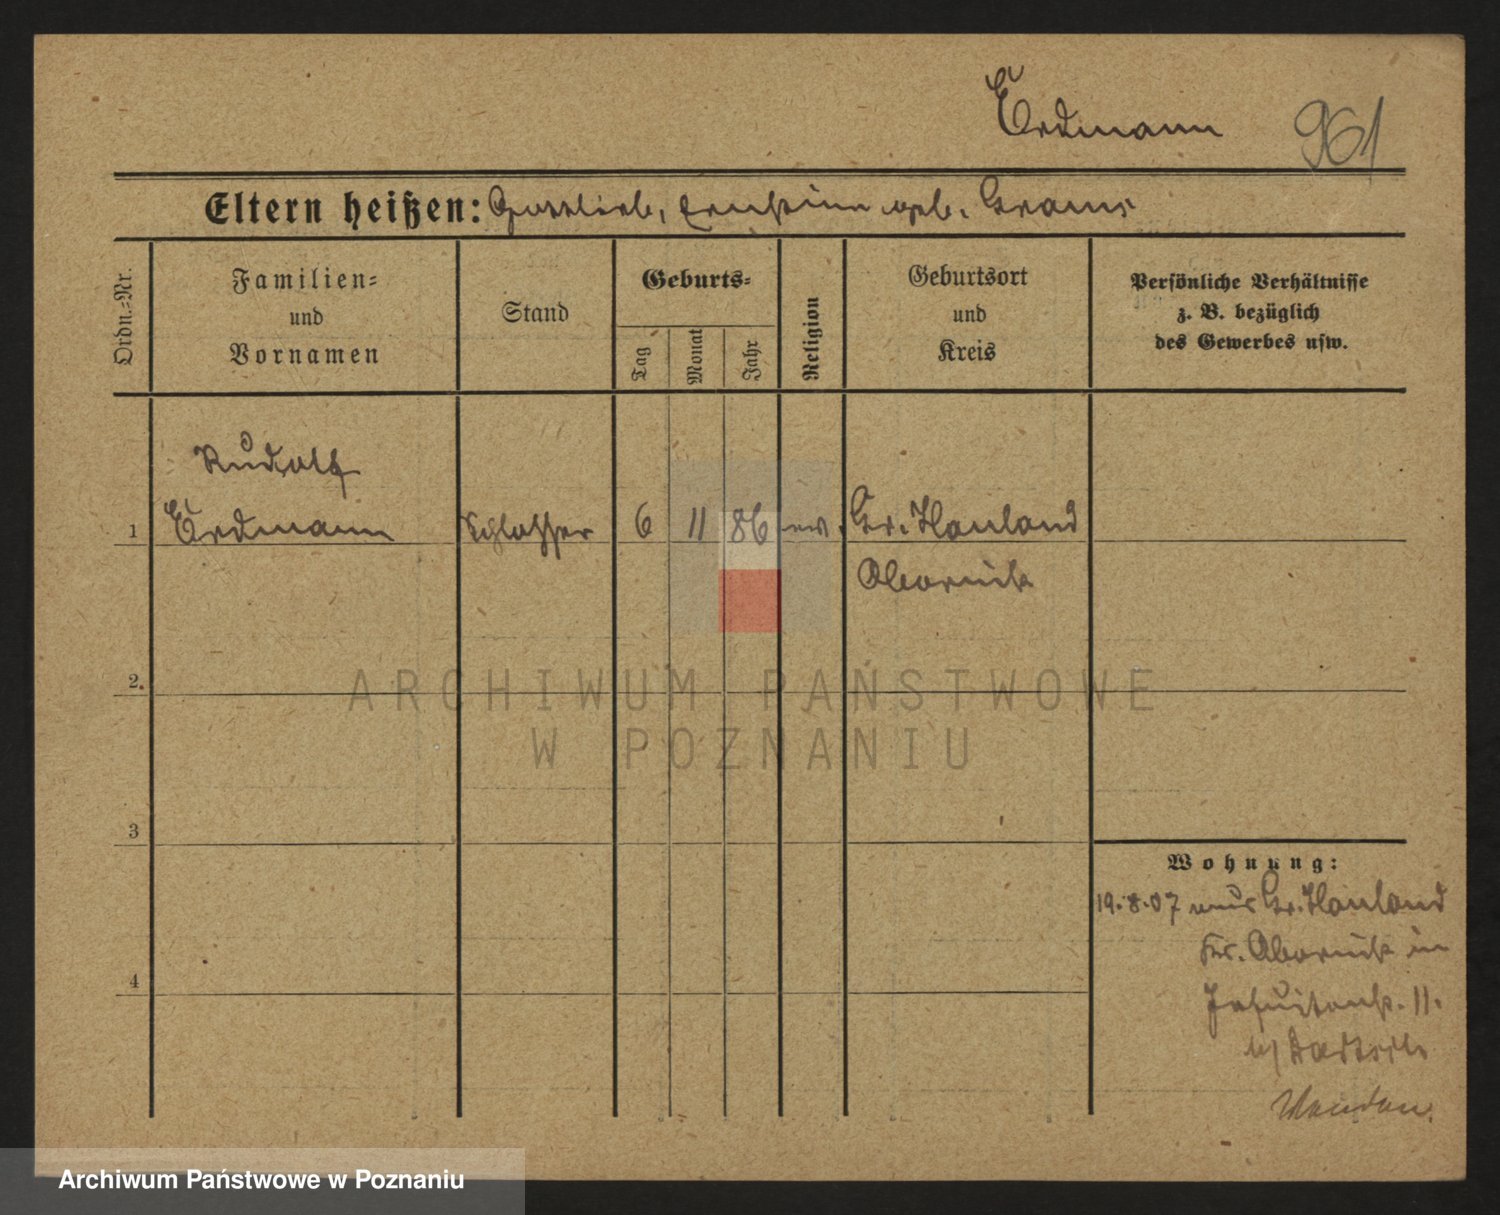 Erdmann 961
Eltern heißen: Gottlieb, Ernstine geb. Grams
Ordn.-Nr.
Familien- und Vornamen
Stand
Geburts-
Tag
Monat
Jahr
Religion
Geburtsort und Kreis
Persönliche Verhältnisse
z. B. bezüglich
des Gewerbes usw.
Rudolf
1 Erdmann Schlosser 6 11 86 ev. Gr. Hauland
Obornik
2.
ARCHIWUM PAŃSTWOWE
W POZNANIU
3
Wohnung:
19.8.07 aus Gr. Hauland
Kr. Obornik in
4
Jesuitenstr. 11.
b/
Archiwum Państwowe w Poznaniu